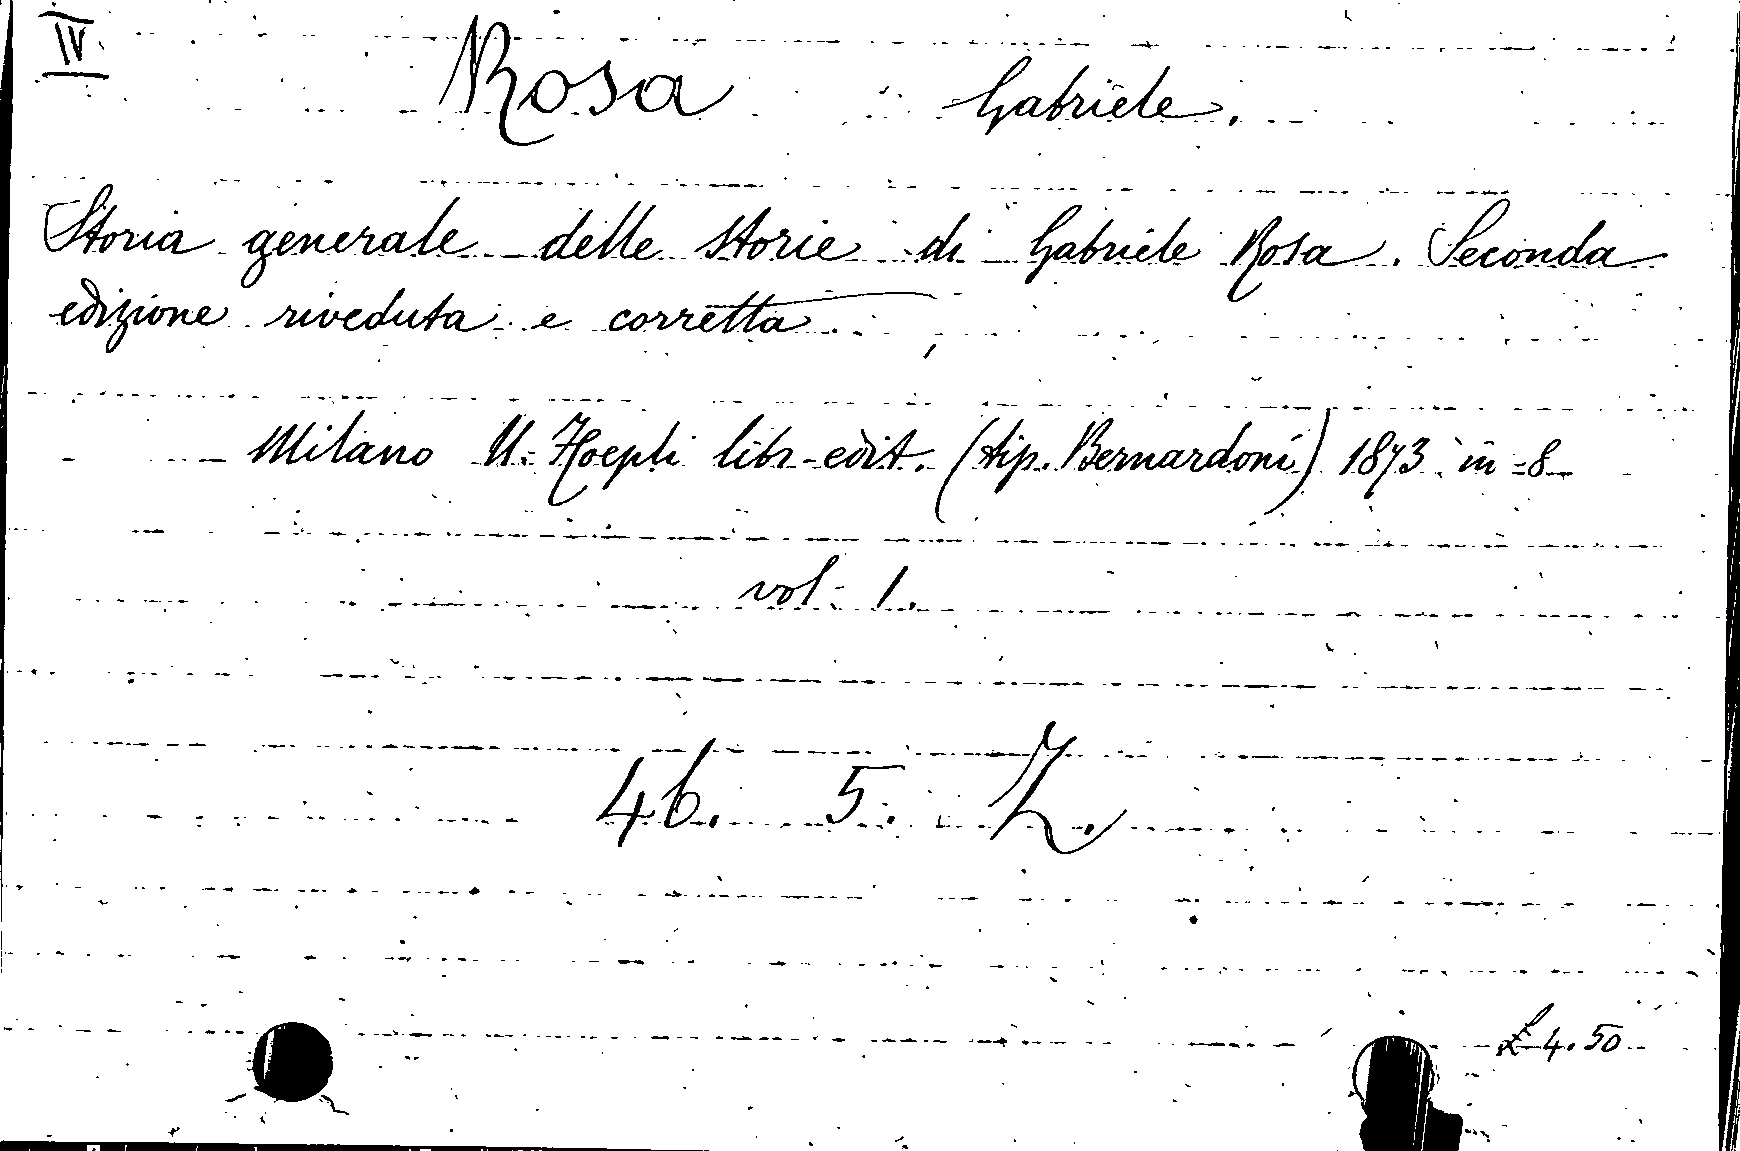 IV.
Rosa Gabriele.
Storia generale delle storie di Gabriele Rosa. Seconda
edizione riveduta e corretta.
Milano U. Hoepli libr-edit. (tip. Bernardoni) 1873 in-8
vol. 1.
46. 5. Z.
£ 4.50